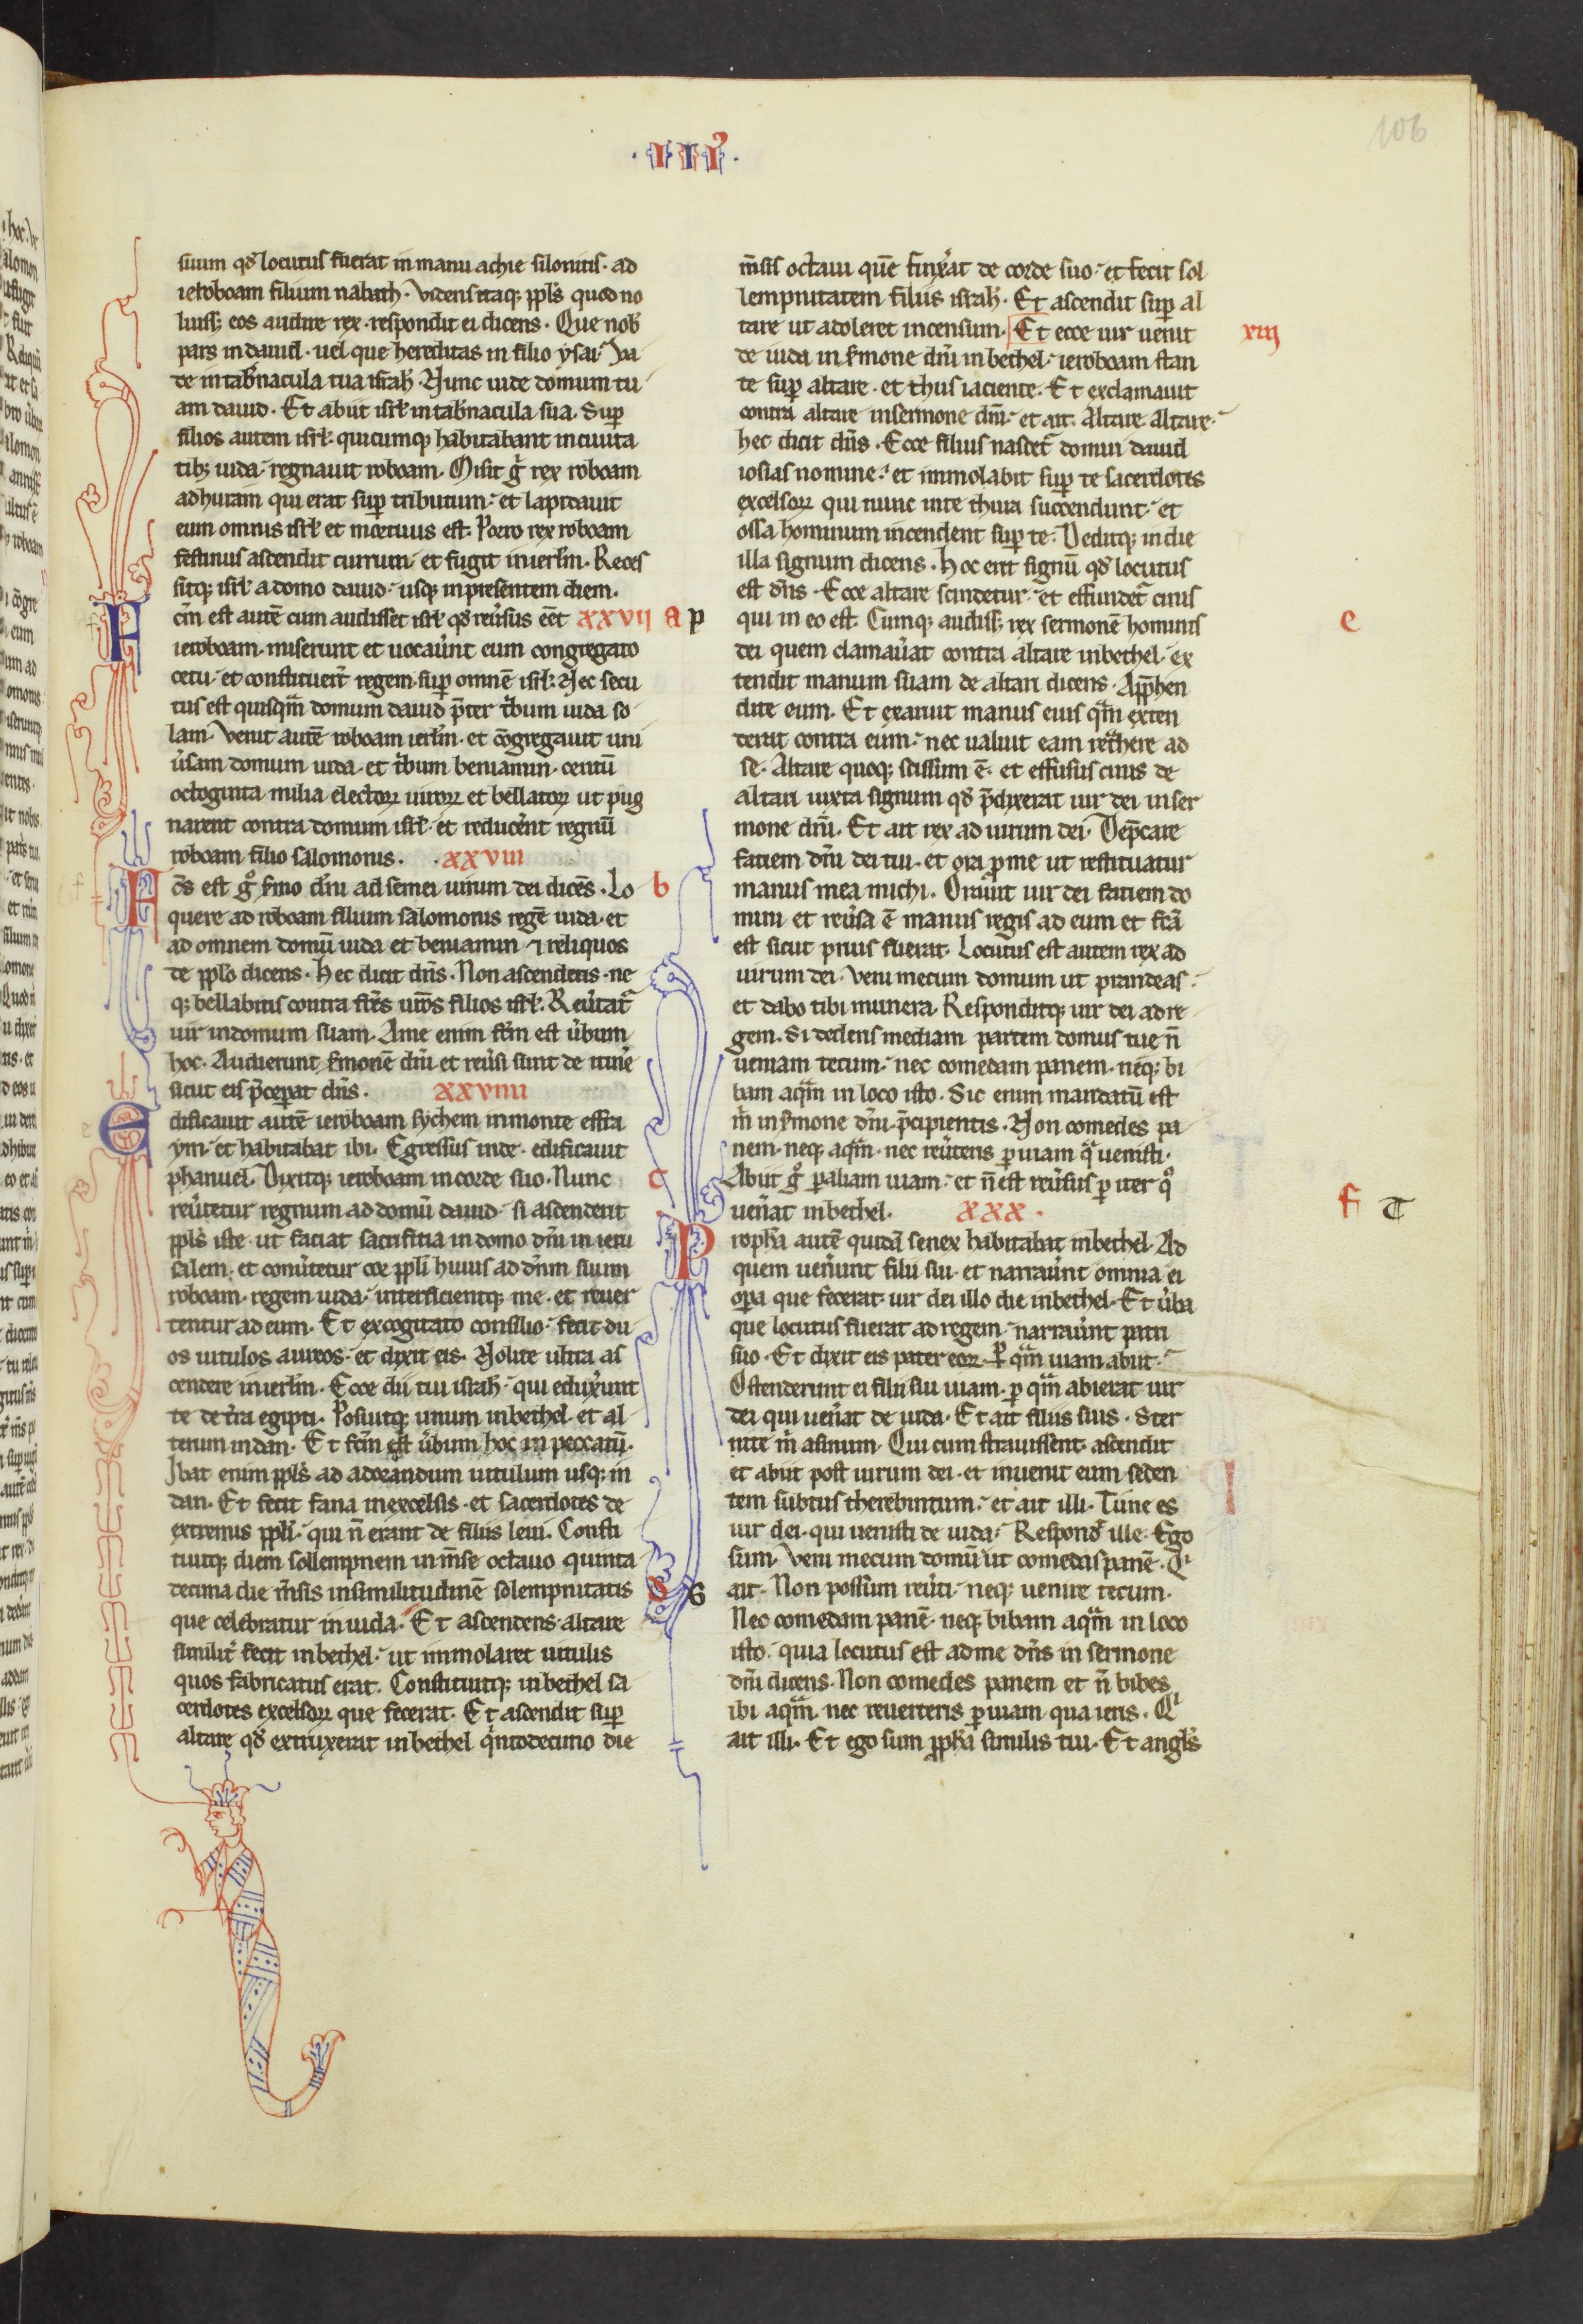 106
· I I Iꝰ ·
suum qd̓ locutus fuerat in manu achie silonitis · ad
ieroboam filium nabath · Vidensitaq; ppl̓s quod no
luiss; eos audire rex · respondit ei dicens · Que nob̓
pars in dauid · uel que hereditas in filio ysai · Va
de in tab̓nacula tua isrl̓ · Nunc uide domum tu
am dauid · Et abiit isrl̓ in tab̓nacula sua · Sup̲
filios autem isrl̓ · quicumq; habitabant in ciuita
tib; iuda · regnauit roboam · Misit g̓ rex roboam
adhuram qui erat sup̲ tributum · et lapidauit
eum omnis isrl̓ et mortuus est · Porro rex roboam
festinus ascendit currum · et fugit inierl̓m · Reces
sitq; isrl̓ a domo dauid · usq; in presentem diem ·
F c̄m est autē cum audisset isrl̓ qd̓ reu̓sus eēt xxvii a p
ieroboam · miserunt et uocau̓nt eum congregato
cetu · et constituer̄t regem sup̲ omnē isrl̓ · Nec secu
tus est quisqm̄ domum dauid p̄ter tb̓um iuda so
lam · Venit autē roboam ierl̓m · et cōgregauit uni
u̓sam domum iuda · et tb̓um beniamin · centū
octoginta milia electoꝝ uiroꝝ et bellatoꝝ ut pug
narent contra domum isrl̓ · et reducer̓nt regnū
roboam filio salomonis · · xxviii
F c̄s est g̊ s̓mo dn̄i ad semei uirum dei dicēs · Lo b
quere ad roboam filium salomonis regē iuda · et
ad omnem domū iuda et beniamin ⁊ reliquos
de pplo̓ dicens · Hec dicit dn̄s · Non ascendetis · ne
q; bellabitis contra frēs ur̄os filios isrl̓ · Reu̓tat̄
uir indomum suam · Ame enim fc̄m est u̓bum
hoc · Audierunt s̓monē dn̄i et reu̓si sunt de itin̓e
sicut eis p̄cep̲at dn̄s · xxviiii
E dificauit autē ieroboam sychem inmonte effra
ym · et habitabat ibi · Egressus inde · edificauit
phanuel · Dixitq; ieroboam in corde suo · Nunc c
reu̓tetur regnum ad domū dauid · si ascenderit
ppl̓s iste · ut faciat sacrifitia in domo dn̄i in ieru
salem · et conu̓tetur cor ppl̓i huius ad dn̄m suum
roboam · regem iuda · interficientq; me · et reuer
tentur ad eum · Et excogitato consilio · fecit du
os uitulos aureos · et dixit eis · Nolite ultra as
cendere inierl̓m · Ecce dii tui isrl̓ · qui eduxer̓unt
te det̓ra egipti · Posuitq; unum inbethel · et al
terum indan · Et fc̄m est u̓bum hoc in peccatū ·
Ibat enim ppl̓s ad adorandum uitulum usq; in
dan · Et fecit fana inexcelsis · et sacerdotes de
extremis ppl̓i · qui n̄ erant de filiis leui · Consti
tuitq; diem sollempnem in m̄se octauo quinta
decima die m̄sis insimilitudinē solempnitatis d G
que celebratur in iuda · Et ascendens altare
similit̄ fecit inbethel · ut immolaret uitulis
quos fabricatus erat · Constituitq; inbethel sa
cerdotes excelsoꝝ que fecerat · Et ascendit sup̲
altare qd̓ extruxerat inbethel qintodecimo die
m̄sis octaui quē finx̓at de corde suo · et fecit sol
lempnitatem filiis isrl̓ · Et ascendit sup̲ al
tare ut adoleret incensum · Et ecce uir uenit xiij
de iuda in s̓mone dn̄i inbethel · ieroboam stan
te sup̲ altare · et thus iaciente · Et exclamauit
contra altare insermone dn̄i · et ait · Altare altare ·
hec dicit dn̄s · Ecce filius nascet̄ domui dauid
iosias nomine · et immolabit sup̲ te sacerdotes
excelsoꝝ qui nunc inte thura succendunt · et
ossa hominum incendent sup̲ te · Deditq; indie
illa signum dicens · Hoc erit signū qd̓ locutus
est dn̄s · Ecce altare scindetur · et effundet̄ cinis
qui in eo est · Cumq; audiss; rex sermonē hominis e
dei quem clamau̓at contra altare inbethel · ex
tendit manum suam de altari dicens · App̄hen
dite eum · Et exaruit manus eius qm̄ exten
derat contra eum · nec ualuit eam ret̓here ad
se · Altare quoq; scissum ē · et effusus cinis de
altari iuxta signum qd̓ p̄dixerat uir dei inser
mone dn̄i · Et ait rex ad uirum dei · Dep̄care
faciem dn̄i dei tui · et ora p̲me ut restituatur
manus mea michi · Orauit uir dei faciem do
mini et reu̓sa ē manus regis ad eum et fc̄a
est sicut prius fuerat · Locutus est autem rex ad
uirum dei · Veni mecum domum ut prandeas ·
et dabo tibi munera · Responditq; uir dei ad re
gem · Si dederis mediam partem domus tue n̄
ueniam tecum · nec comedam panem · neq; bi
bam aqm̄ in loco isto · Sic enim mandatū est
m̓ in s̓mone dn̄i p̄cipientis · Non comedes pa
nem · neq; aqm̄ · nec reu̓teris p̲ uiam qͣ uenisti ·
Abiit g̊ p̲ aliam uiam · et n̄ est reu̓sus p̲ iter qͦ f T
uen̓at inbethel · xxx ·
P ropha̓ autē quidā senex habitabat inbethel · Ad
quem uen̓unt filii sui · et narrau̓nt omnia ei
op̲a que fecerat uir dei illo die inbethel · Et u̓ba
que locutus fuerat ad regem · narrau̓nt patri
suo · Et dixit eis pater eoꝝ · P̲ qm̄ uiam abiit ·
Ostenderunt ei filii sui uiam · p̲ qm̄ abierat uir
dei qui uen̓at de iuda · Et ait filiis suis · Ster
nite m̓ asinum · Qui cum strauissent · ascendit
et abiit post uirum dei · et inuenit eum seden
tem subtus therebintum · et ait illi · Tune es
uir dei · qui uenisti de iuda · Respond̓ ille · Ego
sum · Veni mecum domū ut comedas panē · Qͥ
ait · Non possum reu̓ti · neq; uenire tecum ·
Nec comedam panē · neq; bibam aqm̄ in loco
isto · quia locutus est ad me dn̄s in sermone
dn̄i dicens · Non comedes panem et n̄ bibes
ibi aqm̄ · nec reuerteris p̲ uiam qua ieris · Qͥ
ait illi · Et ego sum ppha̓ similis tui · Et angl̓s